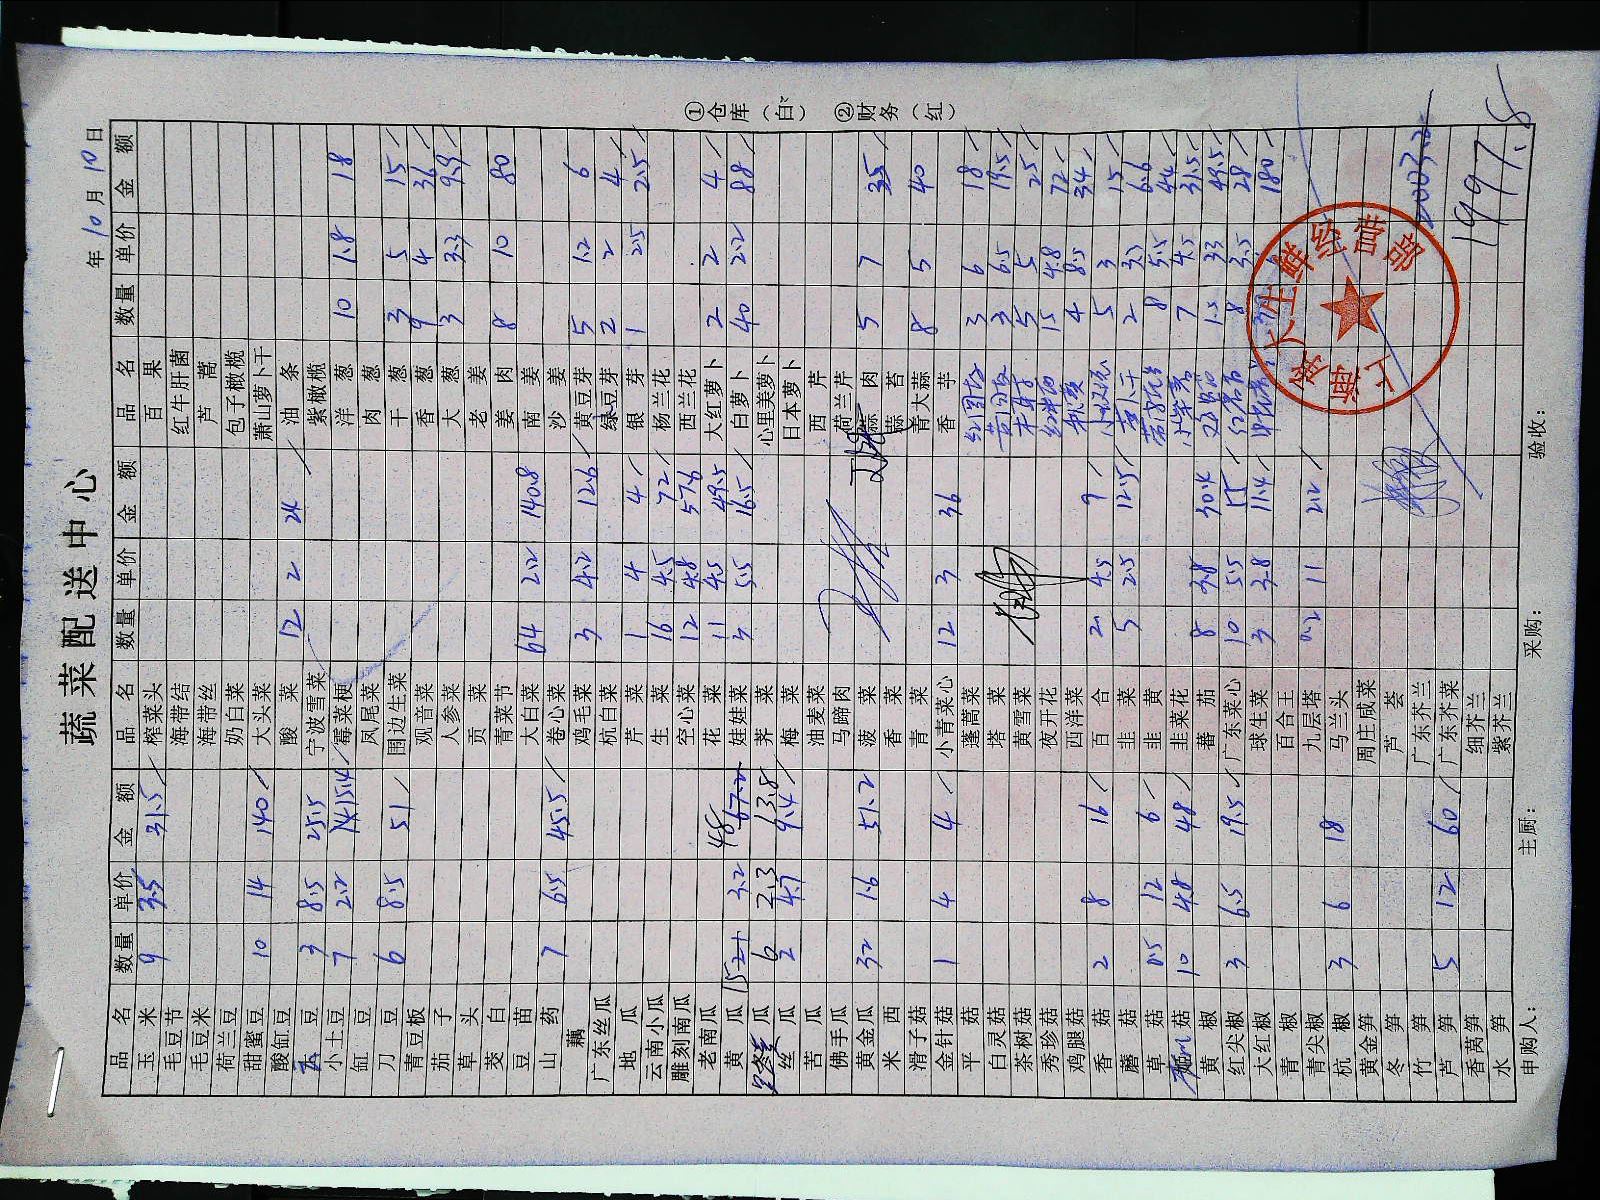 蔬菜配送中心
年 10 月 10 日
品名 数量 单价 金额 品名 数量 单价 金额 品名 数量 单价 金额
玉米 9 3.5 31.5 榨菜头 百果
毛豆节 海带结 红牛肝菌
毛豆米 海带丝 芦蒿
荷兰豆 奶白菜 包子橄榄
甜蜜豆 10 14 140 大头菜 萧山萝卜干
酸缸豆 酸菜 12 2 24 油条
豆 3 8.5 25.5 宁波雪菜 紫橄榄
小土豆 7 2.2 15.4 霉菜梗 洋葱 10 1.8 18
缸豆 凤尾菜 肉葱
刀豆 6 8.5 51 围边生菜 干葱 3 5 15
青豆板 观音菜 香葱 9 4 36
茄子 人参菜 大葱 3 3.3 9.9
草头 贡菜 老姜
茭白 青菜节 姜肉 8 10 80
豆苗 大白菜 64 2.2 140.8 南姜
山药 7 6.5 45.5 卷心菜 沙姜
藕 鸡毛菜 3 4.2 12.6 黄豆芽 5 1.2 6
广东丝瓜 杭白菜 绿豆芽 2 2 4
地瓜 芹菜 1 4 4 银芽 1 2.5 2.5
云南小瓜 生菜 16 4.5 72 杨兰花
雕刻南瓜 空心菜 12 4.8 57.6 西兰花
老南瓜 花菜 11 4.5 49.5 大红萝卜 2 2 4
黄瓜 15 3.2 48 娃娃菜 3 5.5 16.5 白萝卜 40 2.2 88
冬瓜 6 2.3 13.8 荠菜 心里美萝卜
丝瓜 2 4.7 9.4 梅菜 日本萝卜
苦瓜 油麦菜 西芹
佛手瓜 马蹄肉 荷兰芹
黄金瓜 32 1.6 51.2 菠菜 蒜肉 5 7 35
米西 香菜 蒜苔
滑子菇 青菜 青大蒜 8 5 40
金针菇 1 4 4 小青菜心 12 3 36 香芋
平菇 蓬蒿菜 3 6 18
白灵菇 塔菜 3 6.5 19.5
茶树菇 黄雪菜 5 5 25
秀珍菇 夜开花 15 4.8 72
鸡腿菇 西洋菜 4 8.5 34
香菇 2 8 16 百合 2 4.5 9 5 3 15
蘑菇 韭菜 5 2.5 12.5 2 3.3 6.6
草菇 0.5 12 6 韭黄 8 5.5 44
菇 10 4.8 48 韭菜花 7 4.5 31.5
黄椒 蕃茄 8 3.8 30.4 1.5 33 49.5
红尖椒 3 6.5 19.5 广东菜心 10 5.5 55 8 3.5 28
大红椒 球生菜 3 3.8 11.4 180
青椒 百合王
青尖椒 九层塔 0.2 11 2.2
杭椒 3 6 18 马兰头
黄金笋 周庄咸菜
冬笋 芦荟
竹笋 广东芥兰
芦笋 5 12 60 广东芥菜
香莴笋 细芥兰
水笋 紫芥兰
1997.5
申购人： 主厨： 采购： 验收：
①仓库（白） ②财务（红）